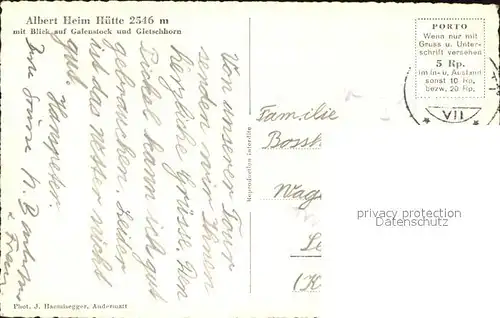 Albert Heim Hütte 2546 m
mit Blick auf Galenstock und Gletschhorn
Von unserer Tour
senden wir Ihnen
herzliche Grüsse. Den
Pickel kann ich gut
gebrauchen. Leider
ist das Wetter nicht
gut. Hanspeter.
Ihre
N.
& Frau
Phot. J. Haemisegger, Andermatt
Reproduction interdite
PORTO
Wenn nur mit
Gruss u. Unter-
schrift versehen
5 Rp.
im In- u. Ausland
sonst 10 Rp.
bezw. 20 Rp.
VII
Familie
Bossh
Wag
(K
privacy protection
Datenschutz